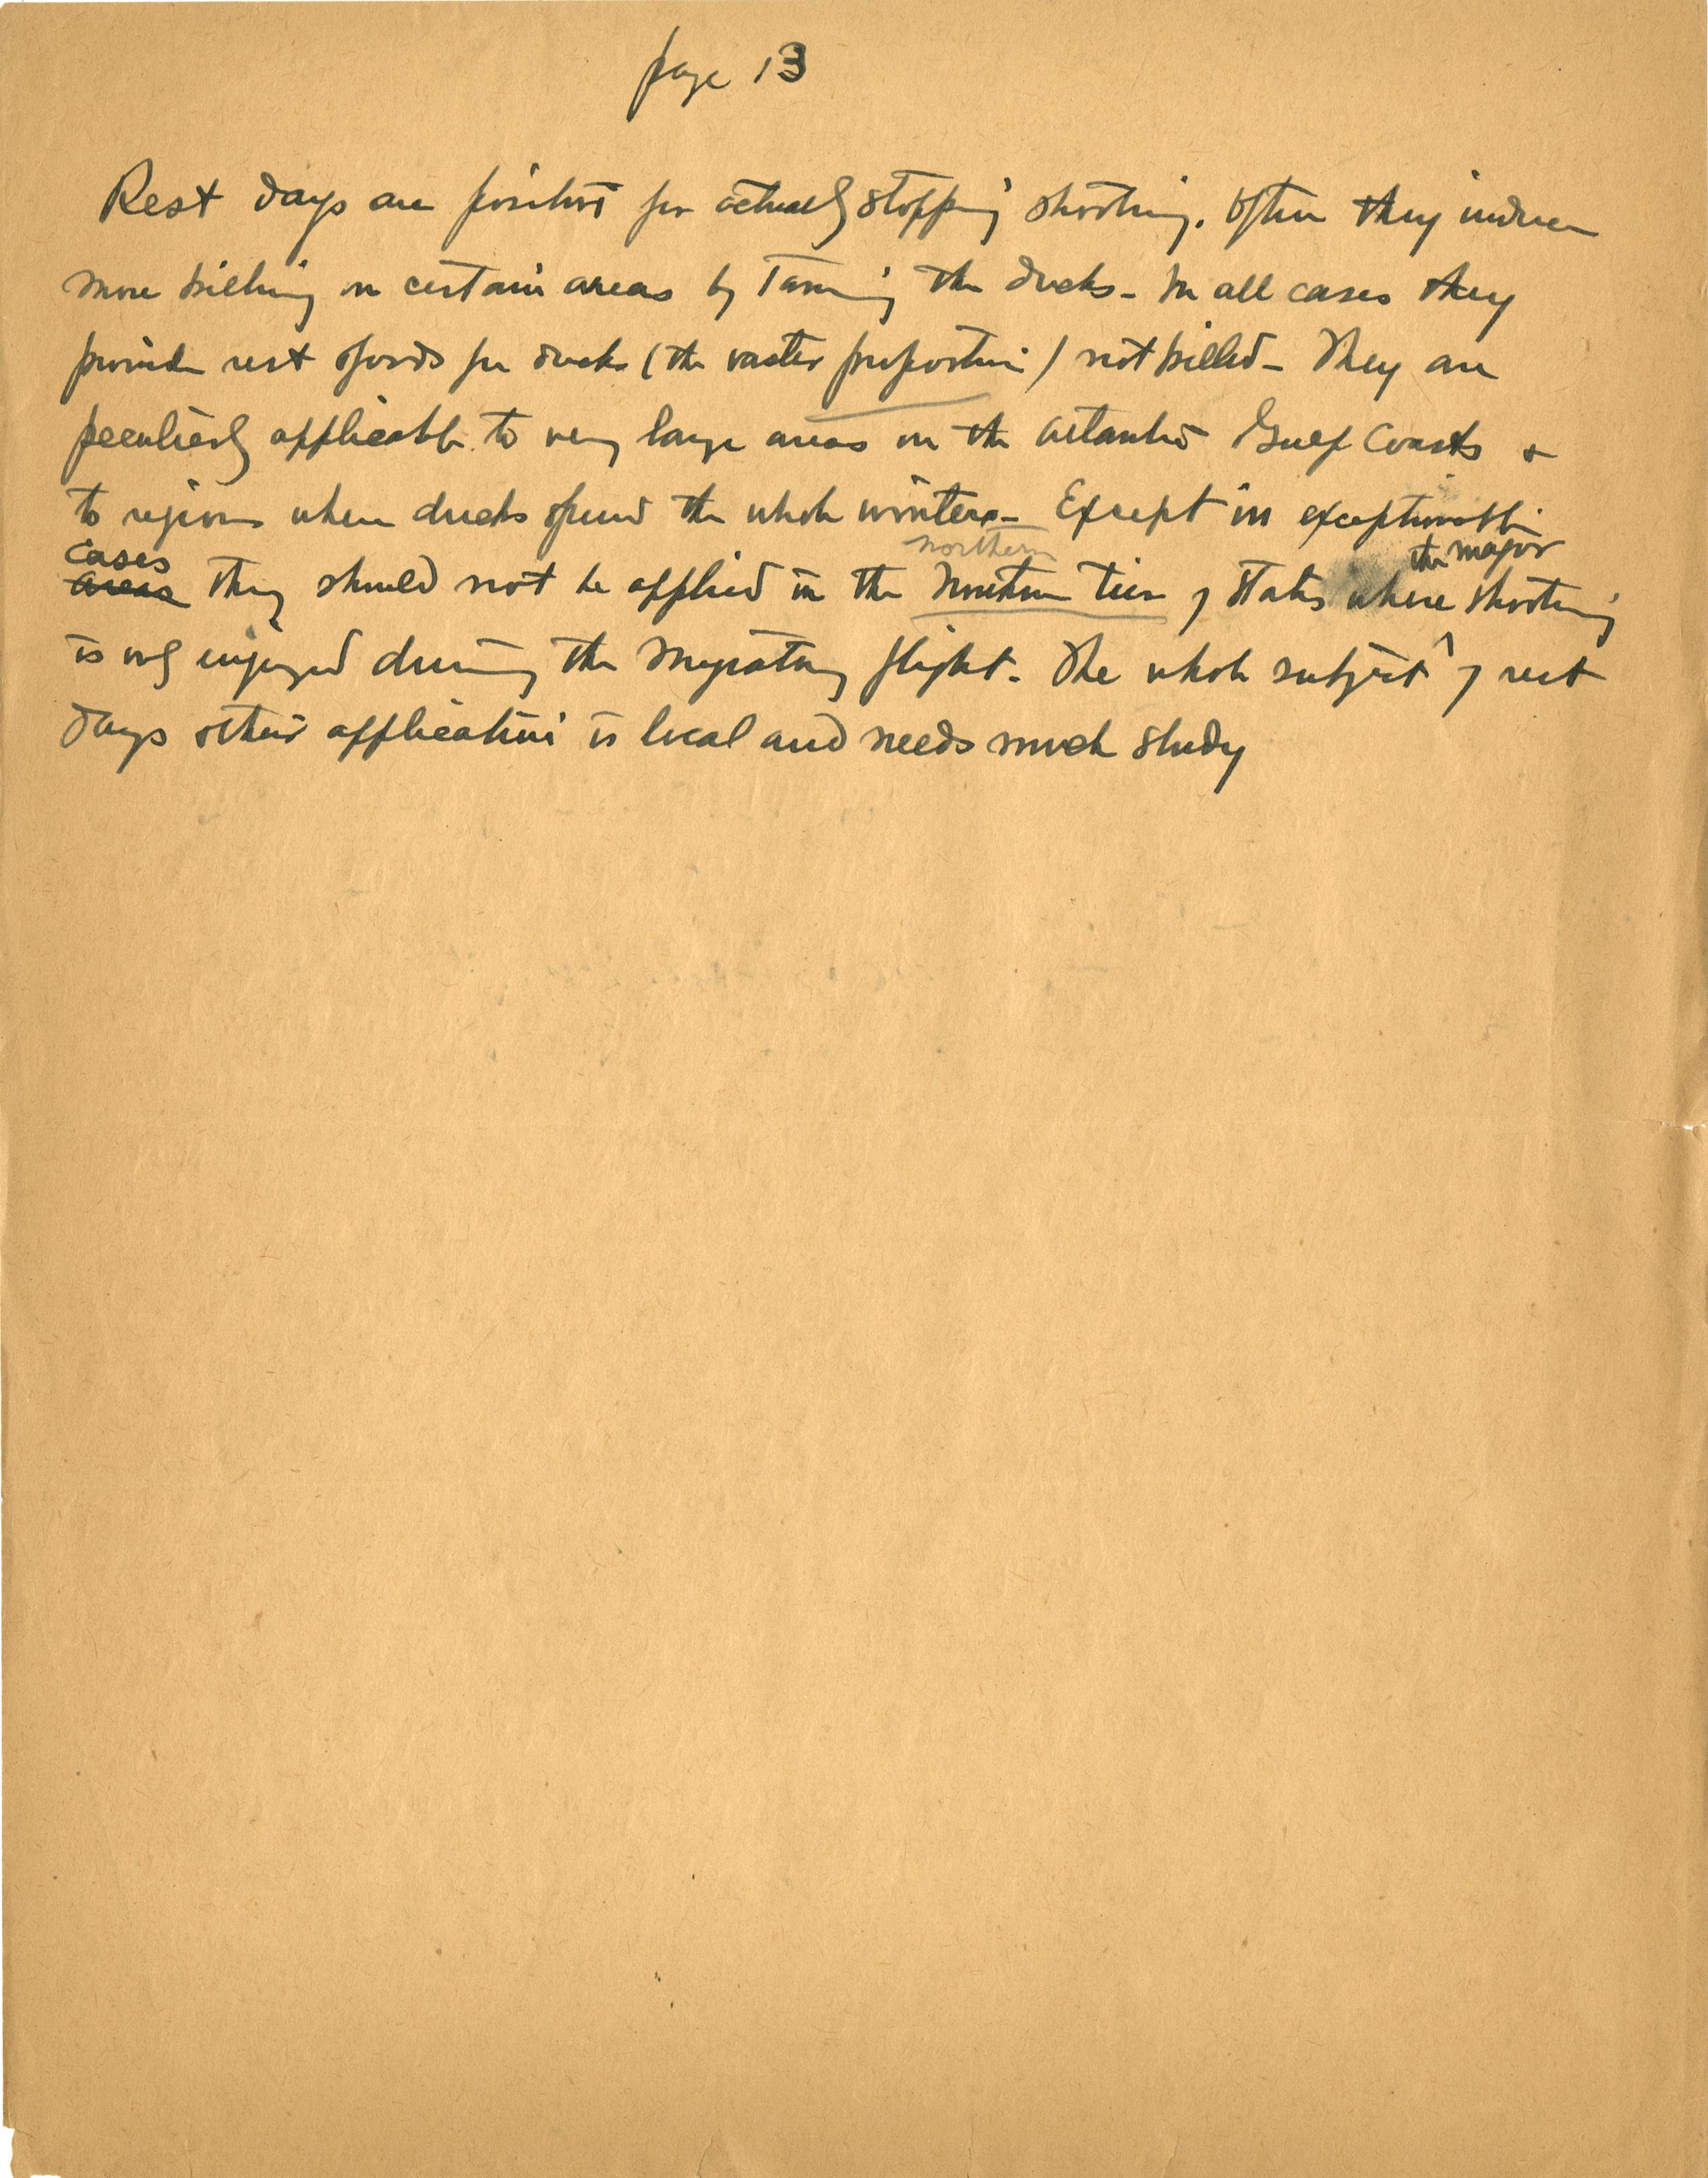 page 13
Rest days are positive for actually stopping shooting. Often they induce
more killing on certain areas by taming the ducks - In all cases they
provide rest & foods for ducks (the vaster proportion) not killed - They are
peculiarly applicable to very large areas on the Atlantic & Gulf Coasts &
to regions where ducks spend the whole winters - Except in exceptionable
northern
cases the major
areas they should not be applied in the Northern tier of States where shooting
is only enjoyed during the migratory flight. The whole subject of rest
days & their application is local and needs much study